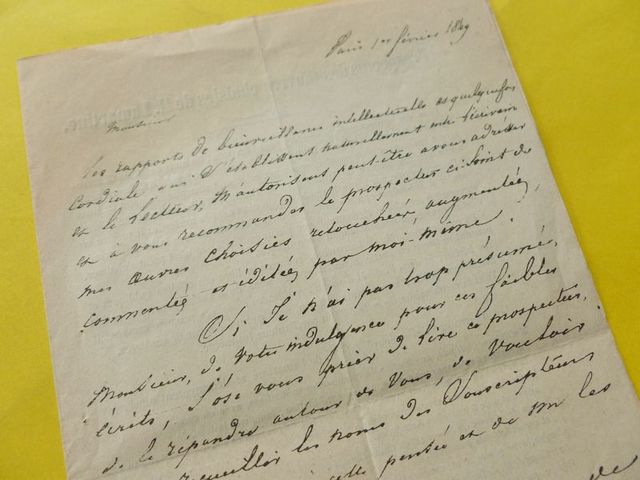 Paris 1er février 1849
Monsieur
Les rapports de bienveillance intellectuelle et quelquefois
cordiale qui s'établissent naturellement entre l'écrivain
et le lecteur, m'autorisent peut être a vous adresser
et à vous recommander le prospectus ci-joint de
mes œuvres choisies retouchées, augmentées,
commentées et éditées par moi-même.
Si je n'ai pas trop présumé,
Monsieur, de votre indulgence pour ces faibles
écrits, j'ose vous prier de lire ce prospectus,
de le répandre autour de vous, de vouloir
recueillir les noms des Souscripteurs
cette pensée et de me les
de